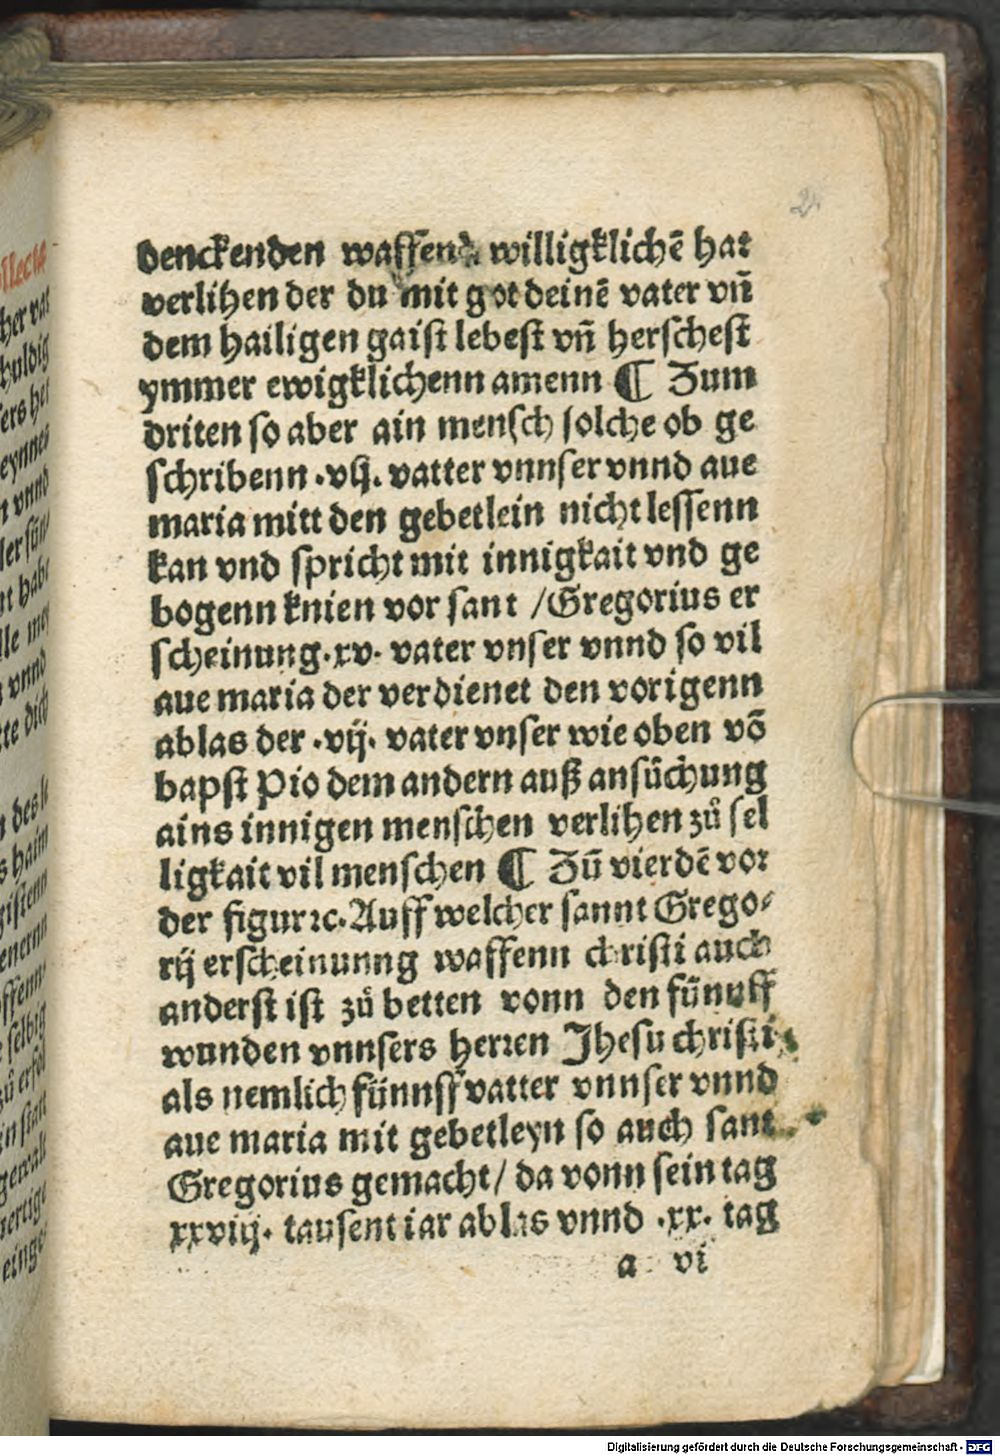 denckenden waffend willigklichē hat
verlihen der du mit got deinē vater vn̄
dem hailigen gaiſt lebeſt vn̄ herſcheſt
ymmer ewigklichenn amenn ¶ Zum
driten ſo aber ain menſch ſolche ob ge
ſchribenn .vij. vatter vnnſer vnnd aue
maria mitt den gebetlein nicht leſſenn
kan vnd ſpricht mit innigkait vnd ge
bogenn knien vor ſant /Gregorius er
ſcheinung.xv. vater vnſer vnnd ſo vil
aue maria der verdienet den vorigenn
ablas der .vij. vater vnſer wie oben vō
bapſt Pio dem andern auß anſuͤchung
ains innigen menſchen verlihen zuͦ ſel
ligkait vil menſchen ¶ Zū vierdē vor
der figur ꝛc. Auff welcher ſannt Grego⸗
rij erſcheinunng waffenn chriſti auch
anderſt iſt zuͦ betten vonn den fünnff
wunden vnnſers herren Jheſu chriſti
als nemlich fünnff vatter vnnſer vnnd
aue maria mit gebetleyn ſo auch ſant
Gregorius gemacht/ da vonn ſein tag
xxviij. tauſent iar ablas vnnd .xx. tag
a vi
Digitalisierung gefördert durch die Deutsche Forschungsgemeinschaft - DFG